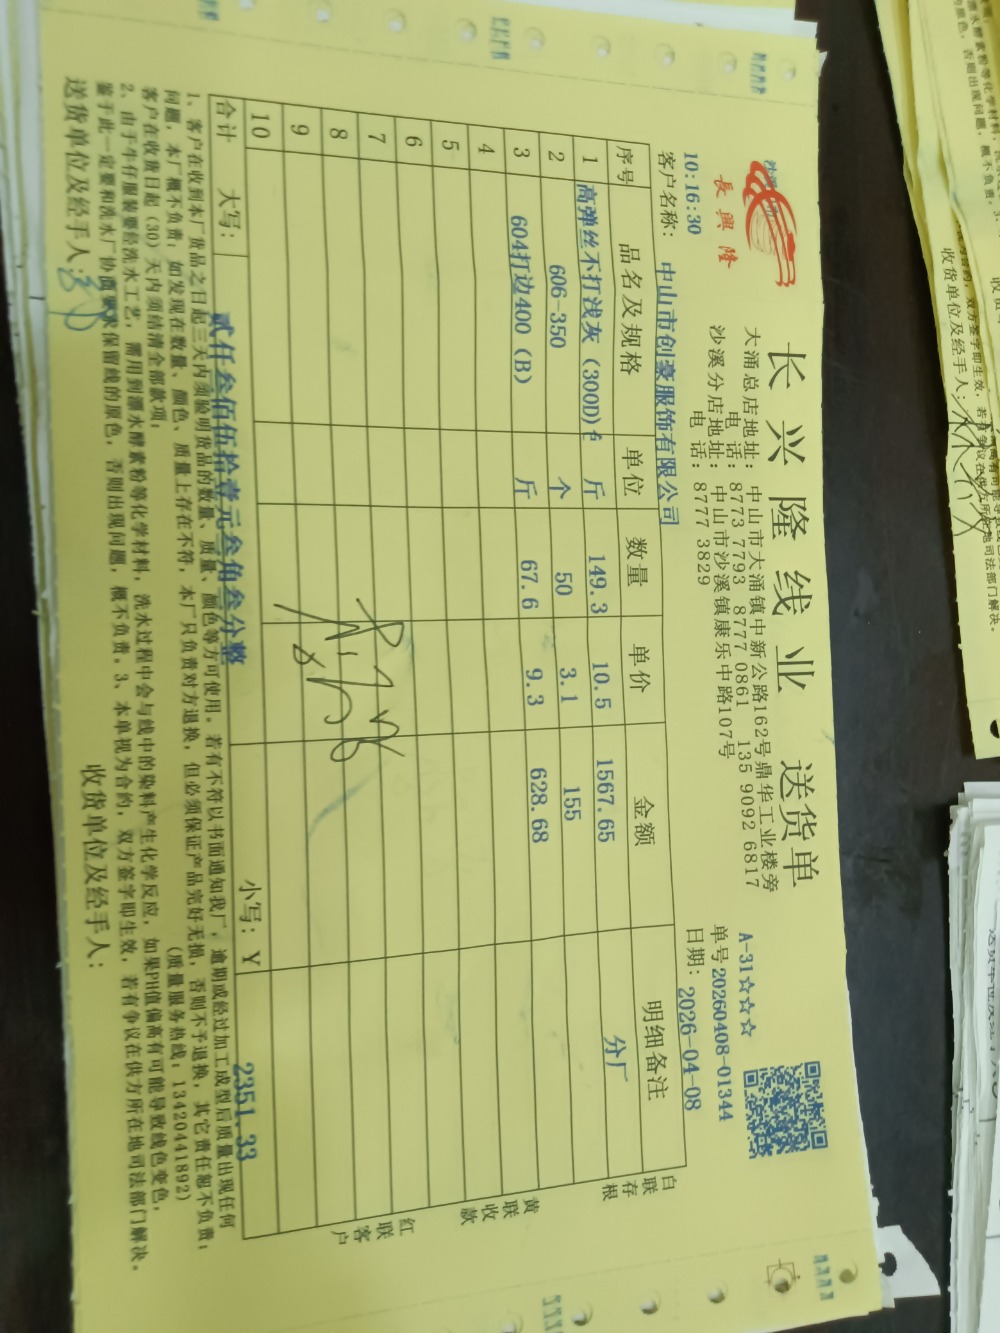 长兴隆线业 送货单
長興隆
大涌总店地址：中山市大涌镇中新公路162号鼎华工业楼旁
电话：8773 7793 8777 0861 135 9092 6817
沙溪分店地址：中山市沙溪镇康乐中路107号
电话：8777 3829
A-31☆☆☆
单号 20260408-01344
10:16:30
日期：2026-04-08
客户名称：中山市创豪服饰有限公司
序号 品名及规格 单位 数量 单价 金额 明细备注
1 高弹丝不打浅灰（300D) 斤 149.3 10.5 1567.65 分厂
2 606-350 个 50 3.1 155
3 604打边400（B) 斤 67.6 9.3 628.68
4
5
6
7
8
9
10
合计 大写：贰仟叁佰伍拾壹元叁角叁分整 小写：Y 2351.33
白联存根
黄联收款
红联客户
1、客户在收到本厂货品之日起三天内须验明货品的数量、质量、颜色等方可使用。若有不符以书面通知我厂，逾期或经过加工成型后质量出现任何
问题，本厂概不负责；如发现在数量、颜色、质量上存在不符，本厂只负责对方退换，但必须保证产品完好无损，否则不予退换，其它责任恕不负责；
客户在收货日起（30）天内须结清全部款项； （质量服务热线：13420441892）
2、由于牛仔服装要经洗水工艺，需用到漂水酵素粉等化学材料，洗水过程中会与线中的染料产生化学反应，如果PH值偏高有可能导致线色变色，
鉴于此一定要和洗水厂协商要求保留线的原色，否则出现问题，概不负责。3、本单视为合约，双方签字即生效，若有争议在供方所在地司法部门解决。
送货单位及经手人： 收货单位及经手人：
收货单位及经手人：